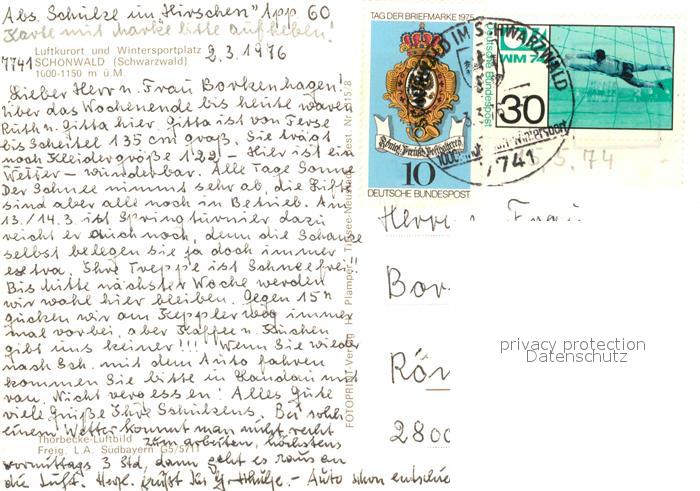 Abs. Schulze im "Hirschen" App 60
Karte mit Marke bitte aufheben!
Luftkurort und Wintersportplatz
7741 SCHONWALD (Schwarzwald) 2.3.1976
1000-1150 m ü.M.
Lieber Herr u. Frau Borkenhagen!
Über das Wochenende bis heute waren
Ruth u. Gitta hier. Gitta ist von Ferse
bis Scheitel 135 cm groß. Sie trägt
noch Kleidergröße 122 - Hier ist ein
Wetter - wunderbar. Alle Tage Sonne
Der Schnee nimmt sehr ab, die Lifte
sind aber alle noch in Betrieb. Am
13./14.3 ist Springturnier dazu
reicht er auch noch, denn die Schanze
selbst belegen sie ja doch immer
extra. Ihre Treppe ist Schneefrei!!
Bis Mitte nächster Woche werden
wir wohl hier bleiben. Gegen 15h
gucken wir am Keplerweg immer
mal vorbei, aber Kaffee u. Kuchen
gibt uns keiner!!! Wenn Sie wieder
nach Sch. mit dem Auto fahren
kommen Sie bitte in Landau mit
ran. Nicht vergessen! Alles Gute
viele Grüße Ihre Schulzens. Bei solch
einem Wetter kommt man nicht recht
Thorbecke-Luftbild zum arbeiten, höchstens
Freig. L.A. Südbayern G5/5711
vormittags 3 Std, dann geht es raus an
die Luft. Herzl. grüßt Sie - Auto schon
FOTOPRINT-Verlag Hr. Plamper, Titisee-Neustadt
TAG DER BRIEFMARKE 1975
10
DEUTSCHE BUNDESPOST
Deutsche Bundespost
WM 74
30
SCHÖNWALD IM SCHWARZWALD
7741
5.74
Herrn Frau
Bor
Kön
2800
privacy protection
Datenschutz